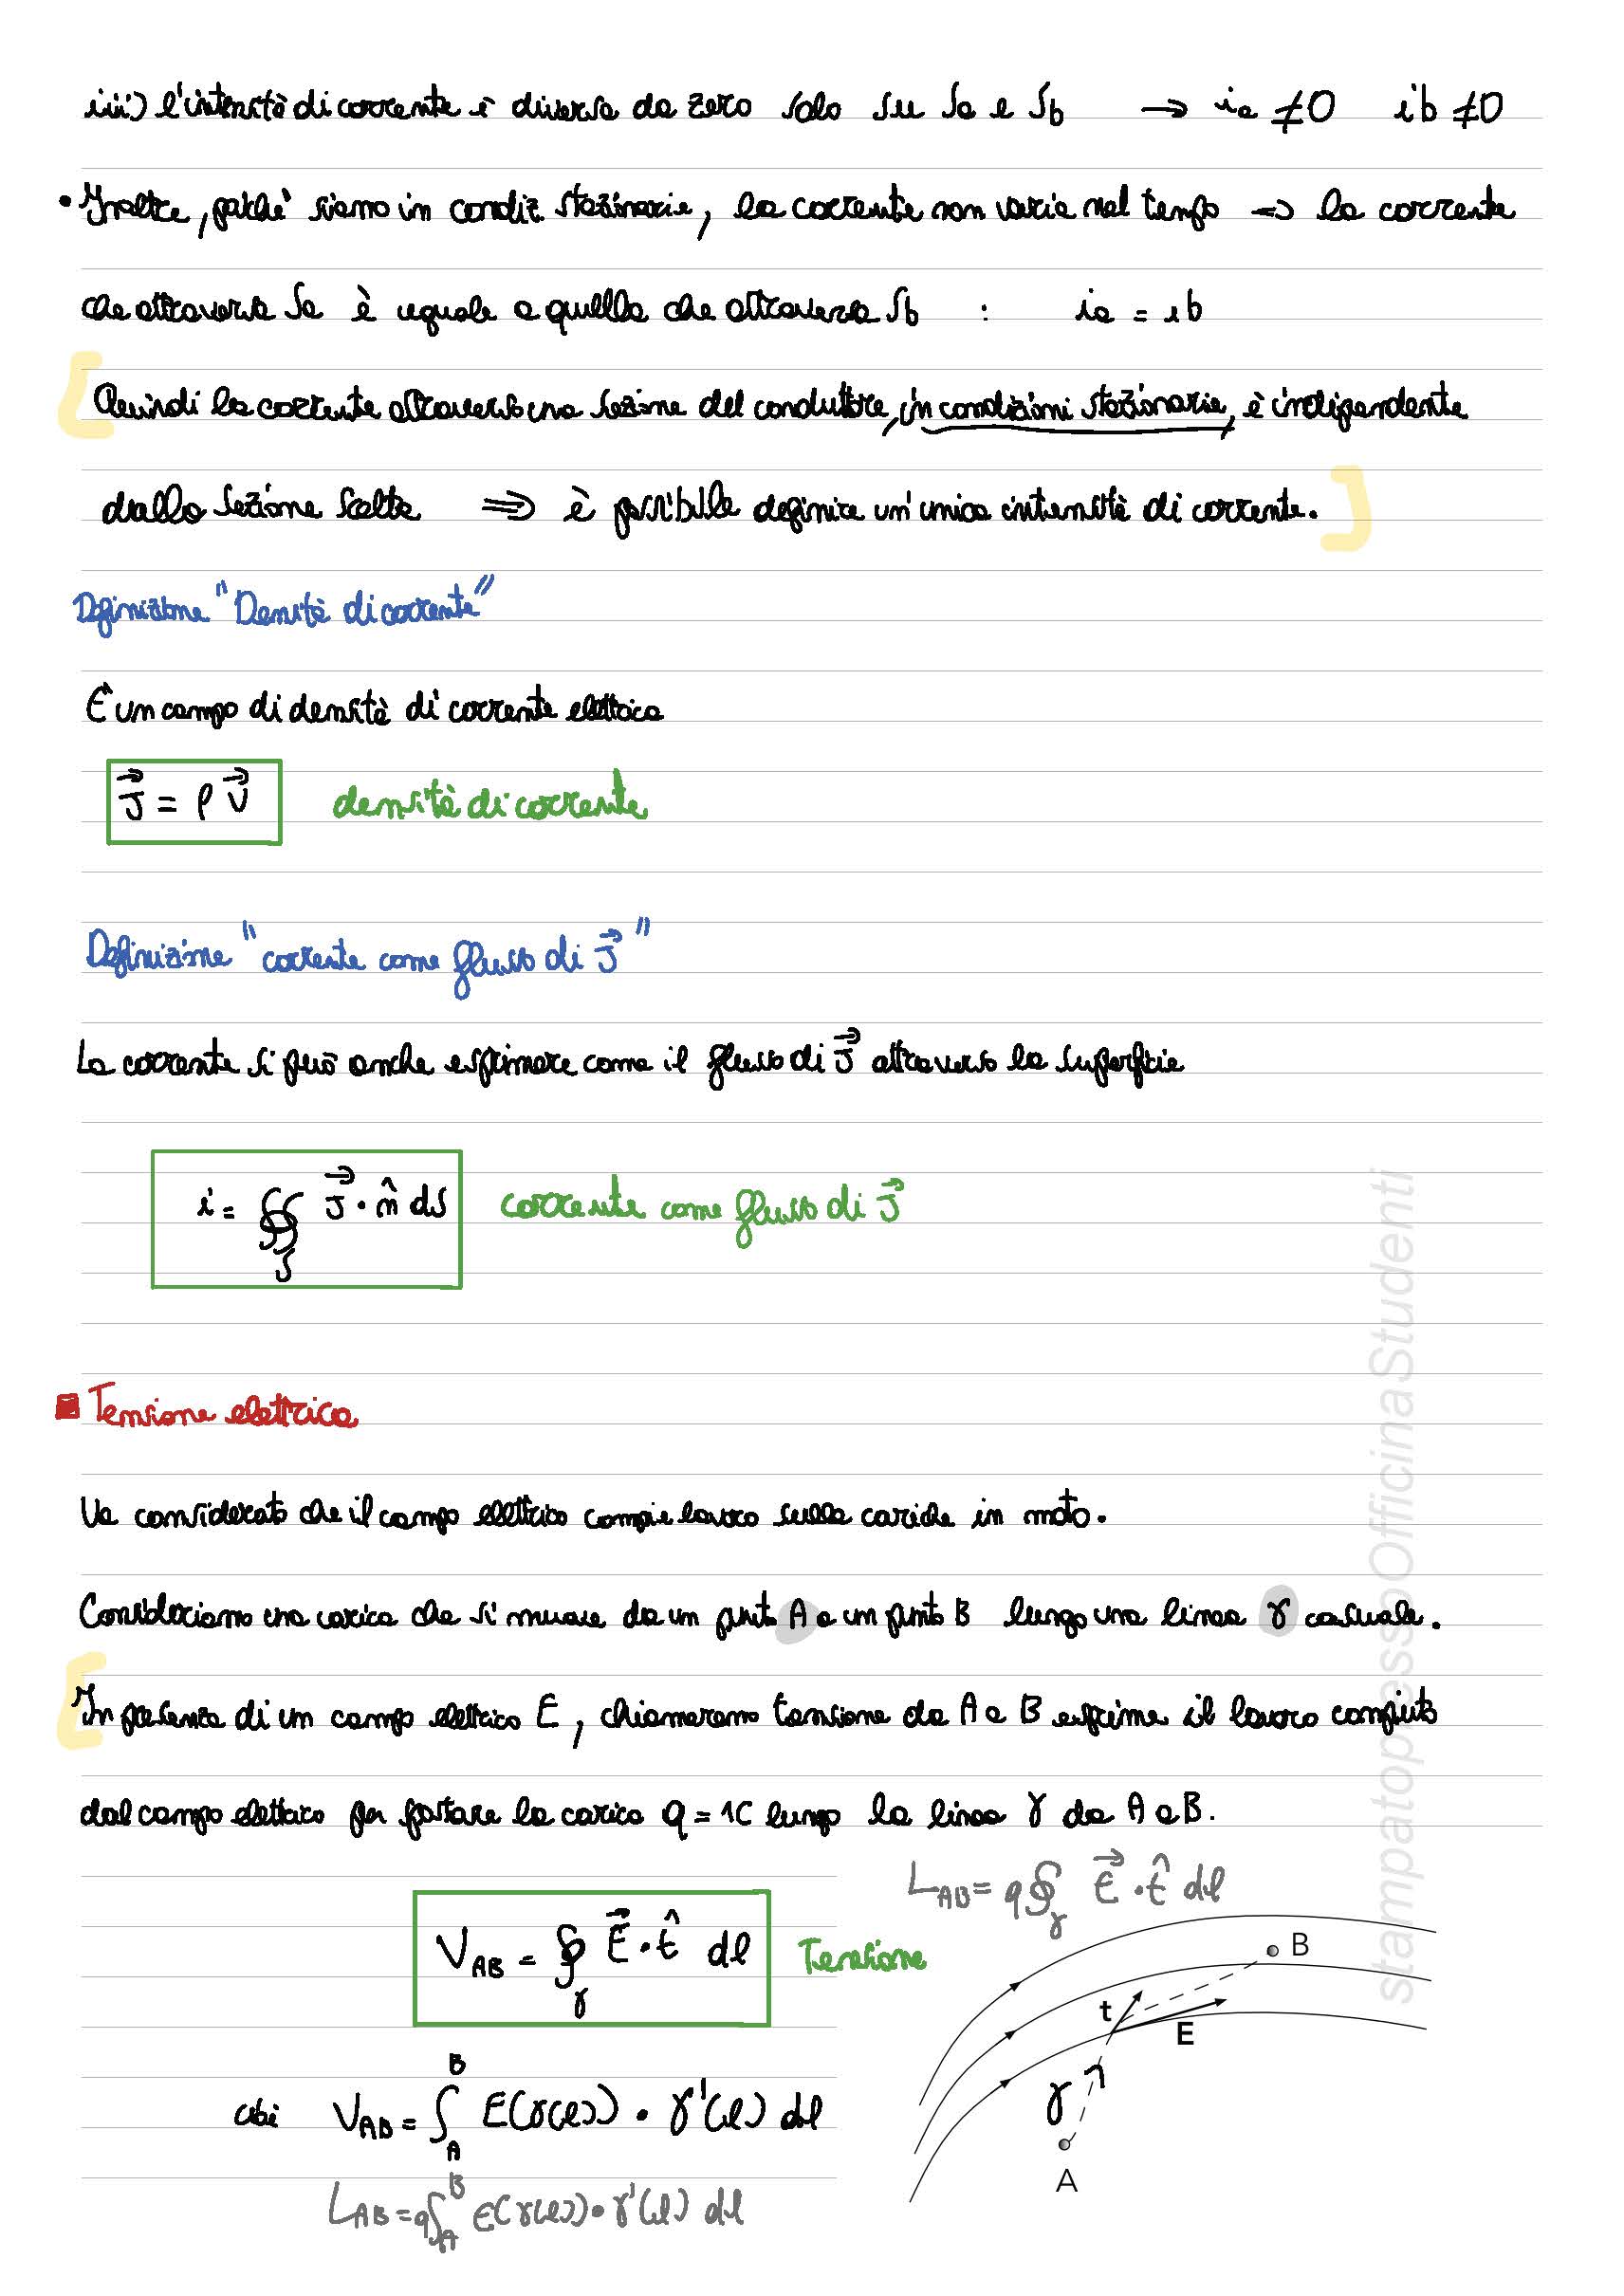 iii) l'intensità di corrente è diversa da zero solo su Sa e Sb → ia ≠0 ib ≠0
• Inoltre, poiché siamo in condiz. stazionarie, la corrente non varia nel tempo => la corrente
che attraversa Sa è uguale a quella che attraversa Sb : ia = ib
Quindi la corrente attraverso una sezione del conduttore, in condizioni stazionarie, è indipendente
dalla sezione scelta => è possibile definire un'unica intensità di corrente.
Definizione "Densità di corrente"
È un campo di densità di corrente elettrica
J⃗ = ρ v⃗ densità di corrente
Definizione "corrente come flusso di J⃗"
La corrente si può anche esprimere come il flusso di J⃗ attraverso la superficie
i = ∯_S J⃗ · n̂ dS corrente come flusso di J⃗
Tensione elettrica
Va considerato che il campo elettrico compie lavoro sulle cariche in moto.
Consideriamo una carica che si muove da un punto A a un punto B lungo una linea γ casuale.
In presenza di un campo elettrico E, chiameremo tensione da A a B esprime il lavoro compiuto
dal campo elettrico per portare la carica q = 1C lungo la linea γ da A a B.
L_AB = q∮_γ E⃗ · t̂ dl
V_AB = ∮_γ E⃗ · t̂ dl Tensione
cioè V_AB = ∫_A^B E(γ(l)) · γ'(l) dl
L_AB = q∫_A^B E(γ(l)) · γ'(l) dl
B
t
E
γ
A
stampatopressoOfficinaStudenti